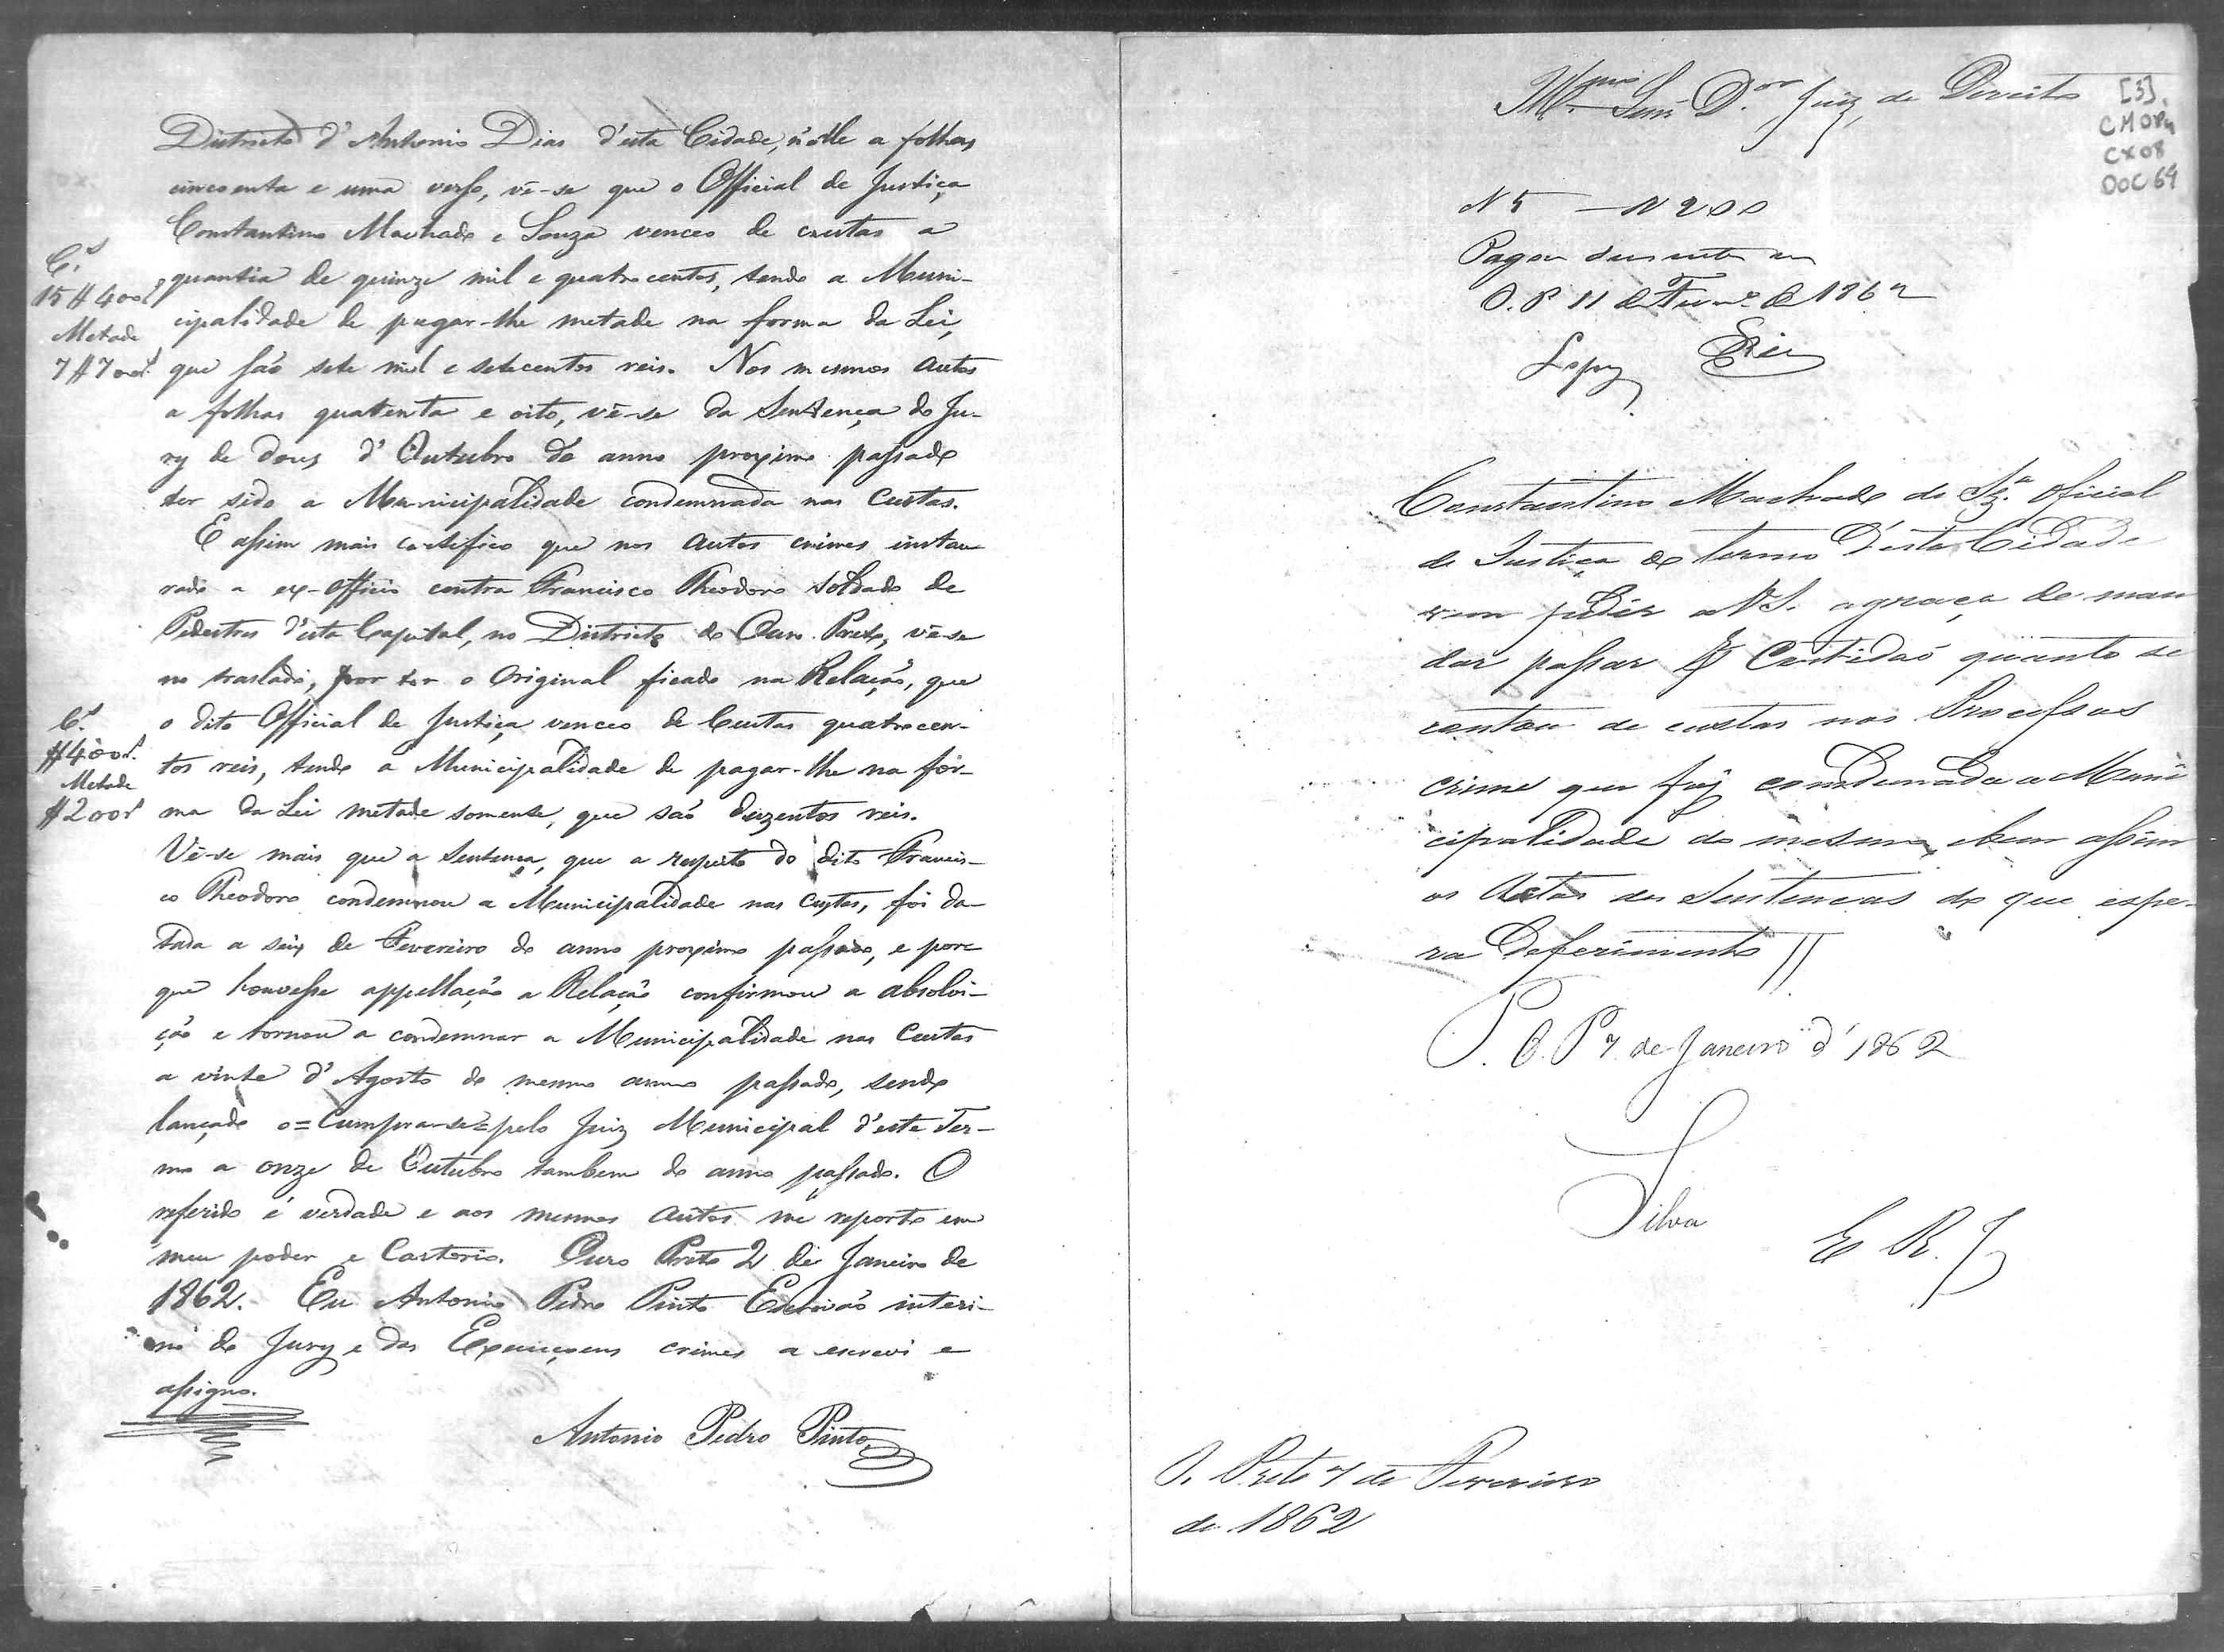 Districto d'Antonio Dias d'esta Cidade, n'elle a folhas
cincoenta e uma verso, vê-se que o Official de Justiça
Constantino Machado e Souza venceo de custas a
quantia de quinze mil e quatrocentos, tendo a Muni-
cipalidade de pagar-lhe metade na forma da Lei,
que são sete mil e setecentos reis. Nos mesmos autos
a folhas quarenta e oito, vê-se da Sentença do Ju-
ry de dous d'Outubro do anno proximo passado
ter sido a Municipalidade condemnada nas Custas.
E assim mais certifico que nos autos crimes instau
rado a ex-officio contra Francisco Theodoro soldado de
Pedestres d'esta Capital, no Districto do Ouro Preto, vê-se
no traslado, por ter o Original ficado na Relação, que
o dito Official de Justiça venceo de Custas quatrocen-
tos reis, tendo a Municipalidade de pagar-lhe na fór-
ma da Lei metade somente, que são duzentos reis.
Vê-se mais que a Sentença, que a respeito do dito Francis-
co Theodoro condemnou a Municipalidade nas Custas, foi da-
tada a seis de Fevereiro do anno proximo passado, e por
que houvesse appellação a Relação confirmou a absolvi-
ção e tornou a condemnar a Municipalidade nas Custas
a vinte d'Agosto do mesmo anno passado, sendo
lançado o=Cumpra-se=pelo Juiz Municipal d'este Ter-
mo a onze de Outubro tambem do anno passado. O
referido é verdade e aos mesmos autos me reporto em
meu poder e Cartorio. Ouro Preto 2 de Janeiro de
1862. Eu Antonio Pedro Pinto Escrivão interi-
no do Jury e das Execuçoens crimes a escrevi e
assigno.
Antonio Pedro Pinto
C.s
15#400r.s
Metade
7#700r.s
C.s
#400r.s
Metade
#200r.s
Ill.mo Senr. D.or Juiz de Direito
[3]
CMOP
CX08
DOC 64
N 5 — N 200
Pagou duzentos
O. P 11 de 1862
Lopes
Constantino Machado de Sz.a oficial
de Justiça do termo D'esta Cidade
vem pedir a V.S. a graça de man
dar passar p Certidão quanto se
contou de custas nos Processos
crime que foi condenada a Muni
cipalidade do mesmo, e bem assim
as datas das Sentencas do que espe-
ra Deferimento
P. O. P 7 de Janeiro d'1862
Silva
E R. J
O. Preto 7 de Fevereiro
de 1862